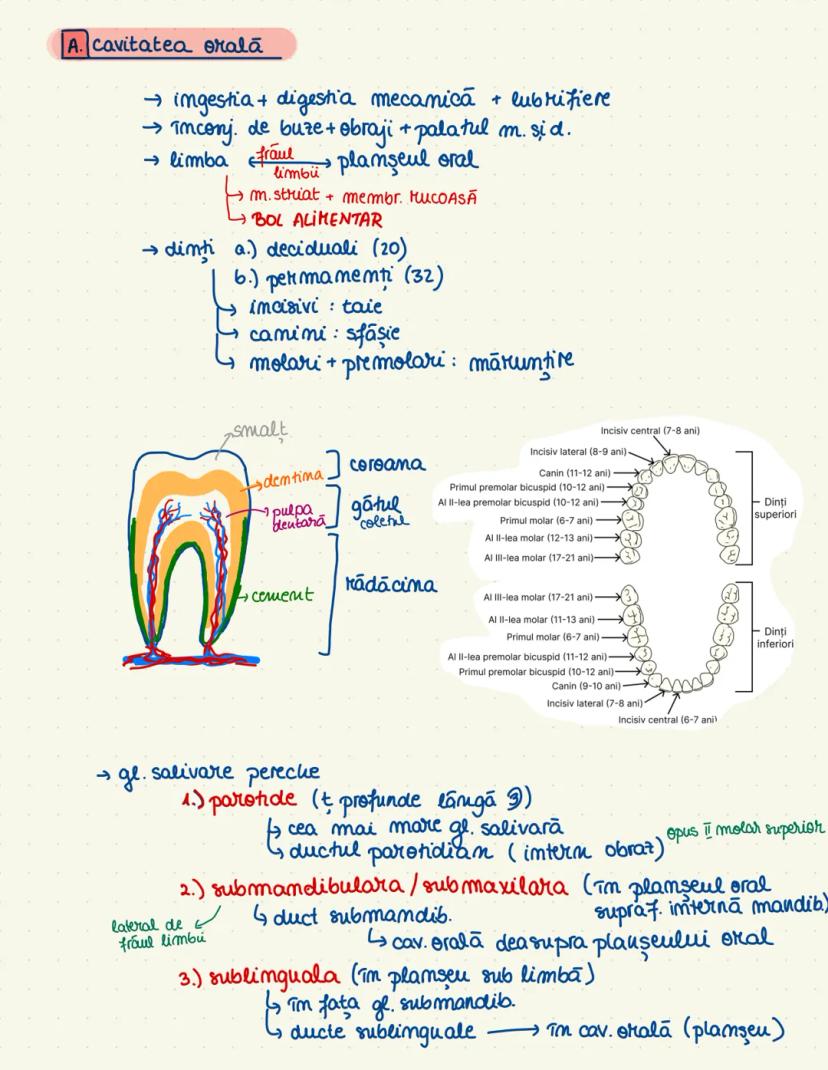 A. cavitatea orală
→ ingestia + digestia mecanică + lubrifiere
→ înconj. de buze + obraji + palatul m. și d.
→ limba ⟷ planșeul oral
frâul limbii
↳ m. striat + membr. MUCOASĂ
↳ BOL ALIMENTAR
→ dinți a.) deciduali (20)
b.) permanenți (32)
↳ incisivi : taie
↳ canini : sfâșie
↳ molari + premolari : mărunțire
smalț
dentina
pulpa dentară
cement
coroana
gâtul
coletul
rădăcina
Incisiv central (7-8 ani)
Incisiv lateral (8-9 ani)
Canin (11-12 ani)
Primul premolar bicuspid (10-12 ani)
Al II-lea premolar bicuspid (10-12 ani)
Primul molar (6-7 ani)
Al II-lea molar (12-13 ani)
Al III-lea molar (17-21 ani)
Dinți superiori
Al III-lea molar (17-21 ani)
Al II-lea molar (11-13 ani)
Primul molar (6-7 ani)
Al II-lea premolar bicuspid (11-12 ani)
Primul premolar bicuspid (10-12 ani)
Canin (9-10 ani)
Incisiv lateral (7-8 ani)
Incisiv central (6-7 ani)
Dinți inferiori
→ gl. salivare pereche
1.) parotide (ț. profunde lângă )
↳ cea mai mare gl. salivară
↳ ductul parotidian (intern obraz) opus II molar superior
2.) submandibulara / submaxilara (în planșeul oral
supraf. internă mandib)
lateral de frâul limbii
↳ duct submandib.
↳ cav. orală deasupra planșeului oral
3.) sublinguala (în planșeu sub limbă)
↳ în fața gl. submandib.
↳ ducte sublinguale → în cav. orală (planșeu)